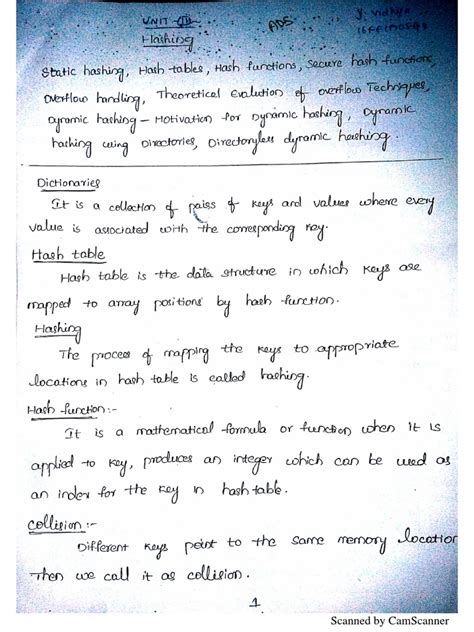 UNIT - III
ADS
Y. Vidhya
Hashing
Static hashing, Hash tables, Hash functions, Secure hash functions,
Overflow handling, Theoretical Evolution of overflow Techniques,
Dynamic hashing - Motivation for Dynamic hashing, Dynamic
hashing using Directories, Directoryless dynamic hashing.
Dictionaries
It is a collection of pairs of keys and values where every
value is associated with the corresponding key.
Hash table
Hash table is the data structure in which keys are
mapped to array positions by hash function.
Hashing
The process of mapping the keys to appropriate
locations in hash table is called hashing.
Hash function :-
It is a mathematical formula or function when it is
applied to key, produces an integer which can be used as
an index for the key in hash table.
Collision :-
Different keys point to the same memory location
Then we call it as collision.
1
Scanned by CamScanner